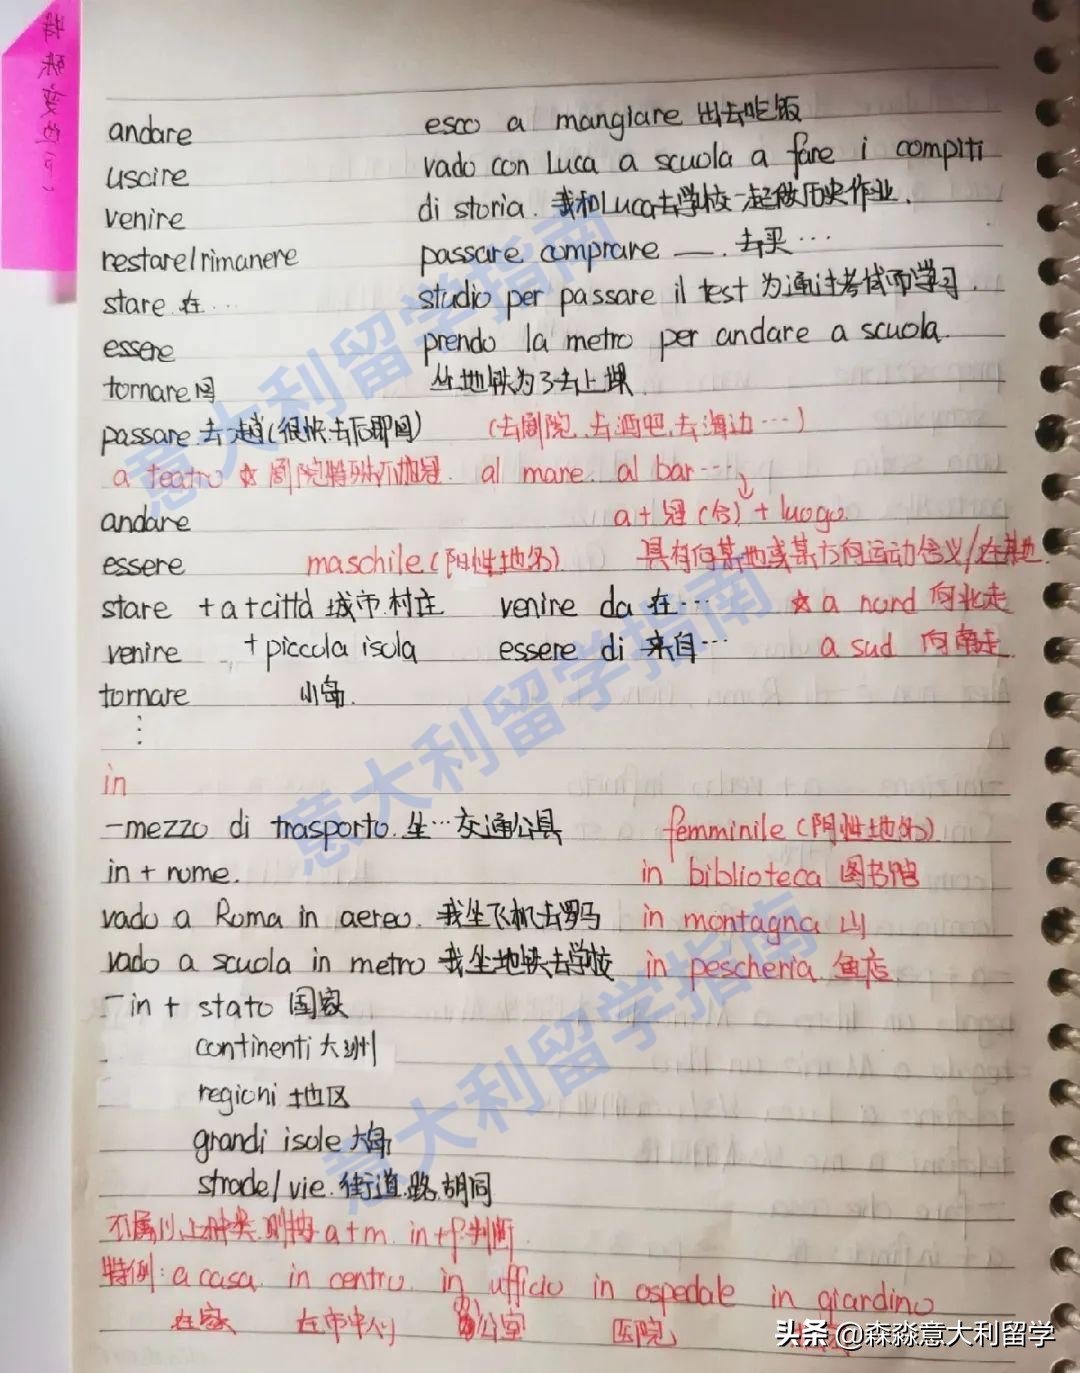 andare esco a mangiare 出去吃饭
uscire vado con Luca a scuola a fare i compiti
venire di storia. 我和Luca去学校一起做历史作业.
restare/rimanere passare comprare —. 去买…
stare 在… studio per passare il test 为通过考试而学习.
essere prendo la metro per andare a scuola.
tornare 回 坐地铁为了去上课
passare 去一趟(很快去后即回) (去剧院,去酒吧,去海边…)
a teatro ☆ 剧院特殊不加冠. al mare. al bar…
andare a + 冠(合) + luogo.
essere maschile (阳性地名) 具有向某地或某方向运动含义/在某地
stare + a + città 城市.村庄 venire da 在… ☆ a nord 向北走
venire + piccola isola essere di 来自… a sud 向南走
tornare 小岛.
⋮
in
-mezzo di trasporto. 坐…交通公具 femminile (阴性地名)
in + nome. in biblioteca 图书馆
vado a Roma in aereo. 我坐飞机去罗马 in montagna 山
vado a scuola in metro 我坐地铁去学校 in pescheria 鱼店
- in + stato 国家
continenti 大洲
regioni 地区
grandi isole 大岛
strade/vie. 街道.路.胡同
不属以上种类,则按 a+m. in+f.判断.
特例: a casa. in centro. in ufficio in ospedale in giardino
在家 在市中心 办公室 医院
头条 @森淼意大利留学
意大利留学指南
意大利留学指南
意大利留学指南